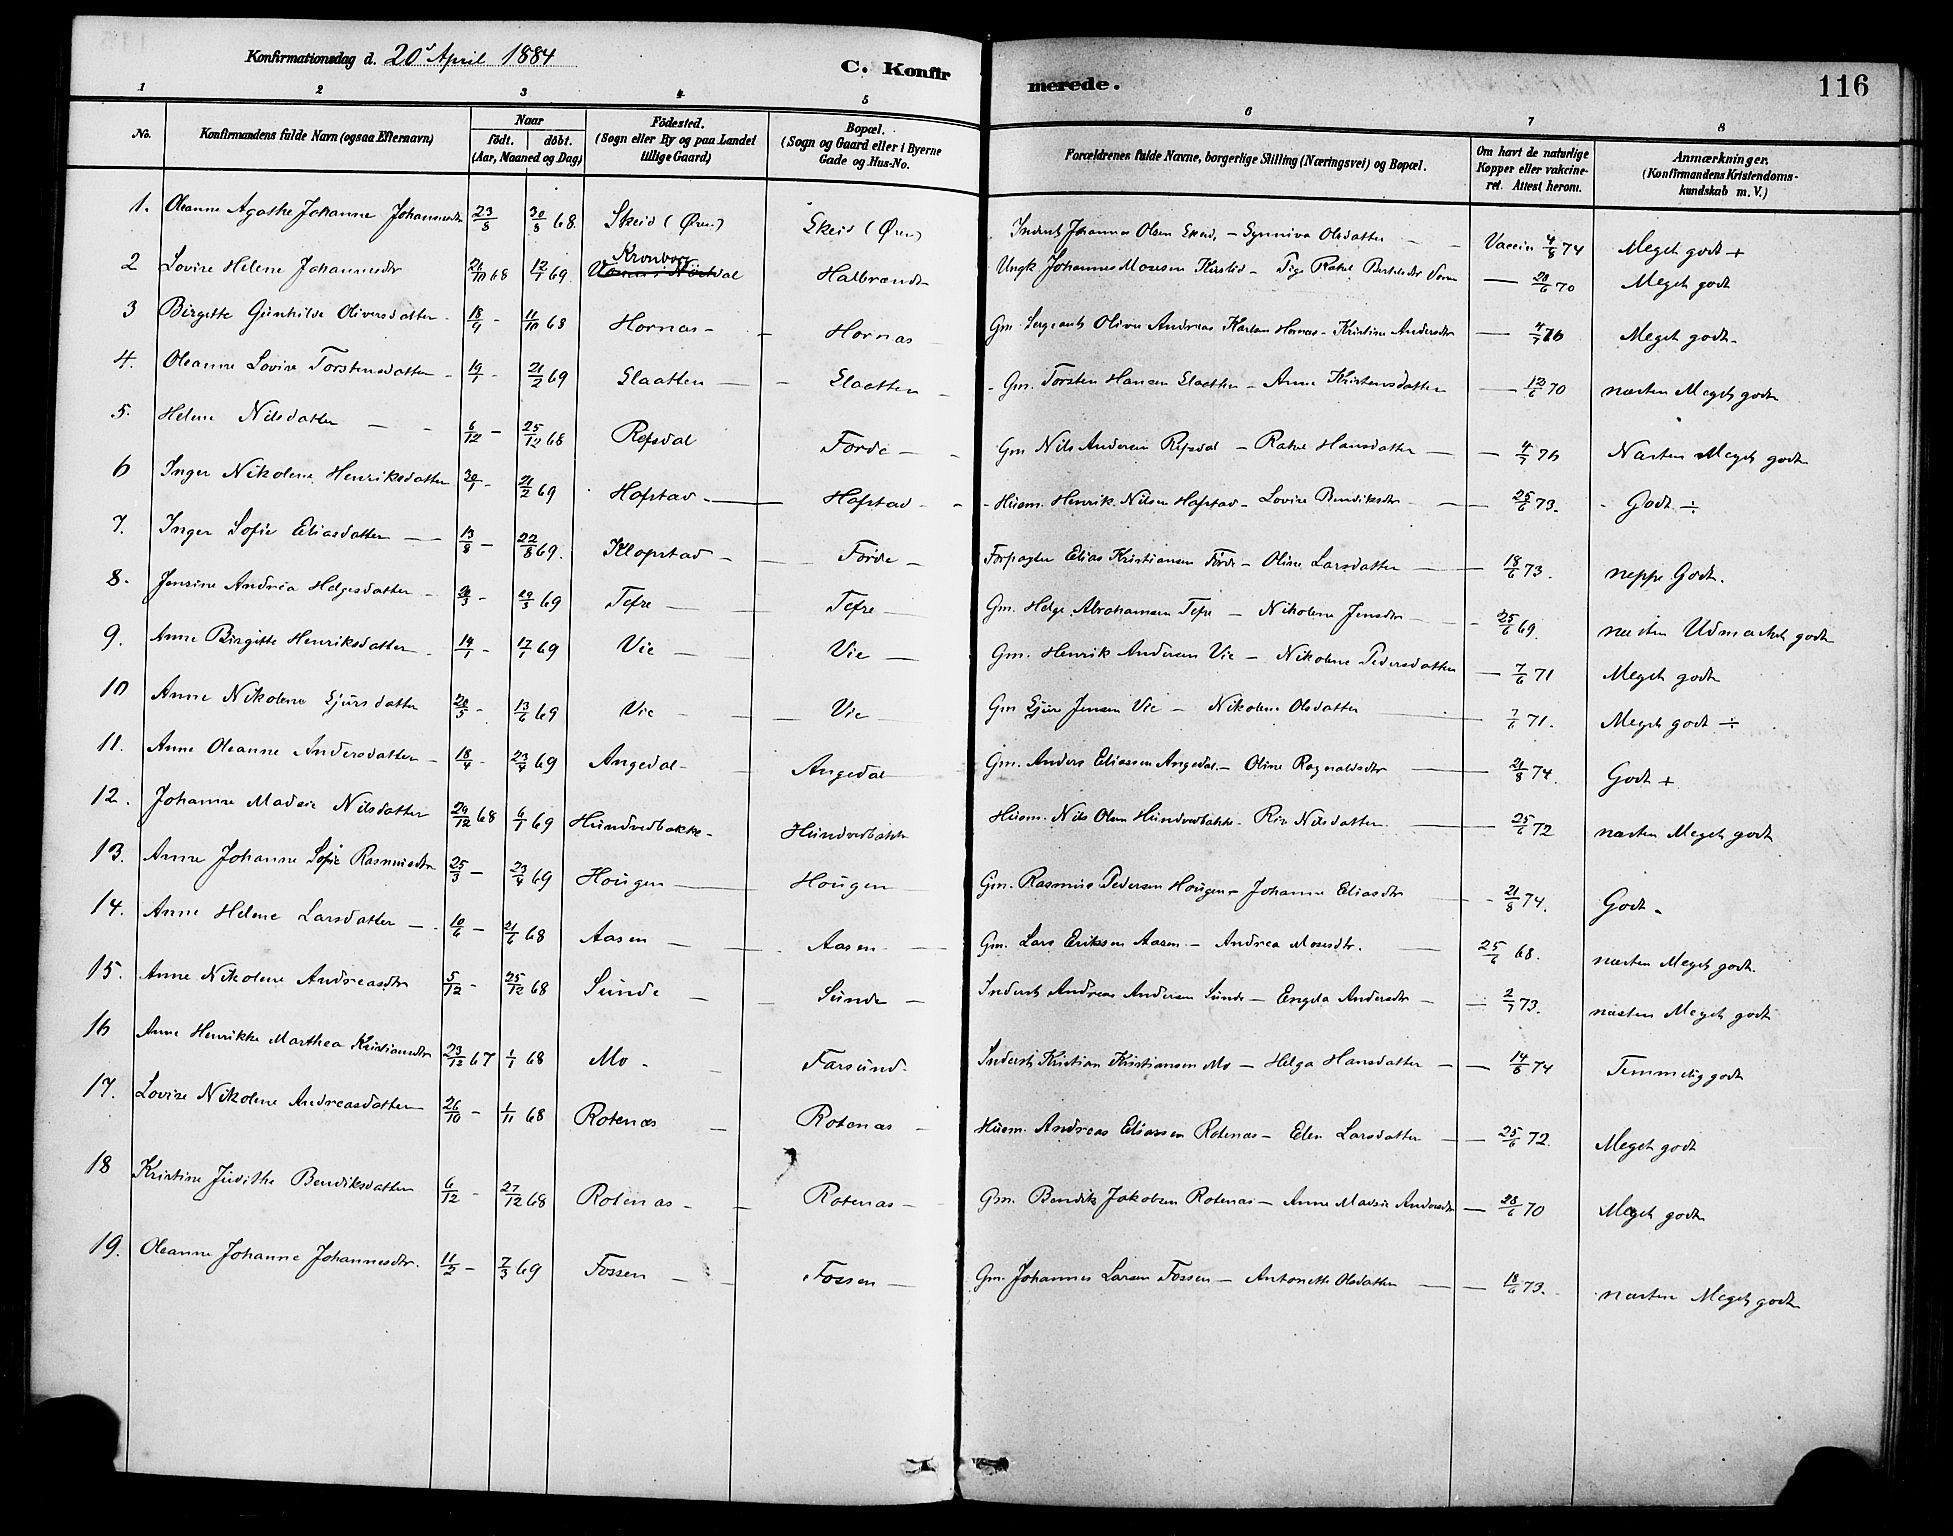 Konfirmationsdag d. 20de April 1884
C. Konfirmerede.
116
1 2 3 4 5 6 7 8
No. Konfirmandens fulde Navn (ogsaa Efternavn) Naar födt. döbt. (Aar, Maaned og Dag) Födested. (Sogn eller By og paa Landet tillige Gaard) Bopæl. (Sogn og Gaard eller i Byerne Gade og Hus-No. Forældrenes fulde Navne, borgerlige Stilling (Næringsvei) og Bopæl. Om havt de naturlige Kopper eller vakcineret. Attest herom. Anmærkninger. (Konfirmandens Kristendomskundskab m. V.)
1. Oleanne Agathe Johanne Johannesdtr 23/8 30/8 68. Skeid (Øren) Skeid (Øren) Inderst Johannes Olsen Skeid, - Synniva Olsdatter - - Vaccin 4/8 74 Meget godt +
2 Lovise Helene Johannesdtr 21/10 68 12/1 69. Kronborg Halbrændt Ungk Johannes Mosesen - Pige Rakel Bertelsdtr — 28/6 70 Meget godt
3 Birgitte Gunhilde Oliversdatter - 18/9 - 11/10 68 Hornæs - - Hornæs Gm. Sergeant Oliver Andreas Hornæs - Kristine Andersdtr — 4/7 76 Meget godt -
4. Oleanne Lovise Torstensdatter - 19/1 - 21/2 69 Slaatten — - Slaatten - Gm. Torsten Hansen Slaatten - Anne Kristensdatter — 12/6 70 næsten Meget godt
5. Helene Nilsdatter — - 6/12 - 25/12 68 Refsdal Förde - - Gm Nils Andersen Refsdal - Rakel Hansdatter — - 4/7 76 Næsten Meget godt
6 Inger Nikolene Henriksdatter 20/1 - 21/2 69 Hafstad - — Hafstad - - Husm. Henrik Nilsen Hafstad - Lovise Bendiksdtr — 25/6 73. - Godt ÷
7. Inger Sofie Eliasdatter — 13/8 - 22/8 69. Klopstad - — Förde - Forpagter Elias Kristiansen Förde - Oline Larsdatter — 18/6 73. neppe Godt.
8. Jensine Andrea Helgesdatter - 20/3 - 29/3 69 Tefre — - Tefre - Gm. Helge Abrahamsen Tefre - Nikolene Jensdtr - 25/6 69. næsten Udmærket godt
9. Anne Birgitte Henriksdatter - 14/1 - 17/1 69 Vie — - Vie — Gm. Henrik Andersen Vie - Nikolene Pedersdatter — 7/6 71 Meget godt
10 Anne Nikolene Gjursdatter 20/5 - 13/6 69 Vie - - Vie - Gm Gjur Jensen Vie - Nikolene Olsdatter — 7/6 71. Meget godt ÷
11. Anne Oleanne Andersdatter - 18/4 - 23/4 69 Angedal - - Angedal Gm. Anders Eliassen Angedal - Oline Ragnaldsdtr — 21/8 74. Godt +
12. Johanne Madsie Nilsdatter 29/12 68 6/1 69 Hundvedbakke - Hundvedbakke Husm. Nils Olsen Hundvedbakke - Nilsdatter — 25/6 72 næsten Meget godt
13. Anne Johanne Sofie Rasmusdtr 25/3 - 23/4 69 Hougen — Hougen Gm. Rasmus Pedersen Hougen - Johanne Eliasdtr — 21/8 74. Godt -
14. Anne Helene Larsdatter — 10/6 - 21/6 68 Aasen - - Aasen - Gm. Lars Eriksen Aasen - Andrea Mosesdtr. — 25/6 68. næsten Meget godt.
15. Anne Nikolene Andreasdtr 5/12 - 25/12 68 Sunde - - Sunde - Inderst Andreas Andersen Sunde - Engela Andersdtr — 2/7 73. næsten Meget godt
16 Anne Henrikke Marthea Kristiansdtr 23/12 67 1/1 68 Mo - - Farsund - Inderst Kristian Kristiansen Mo - Helga Hansdatter — 14/8 74 Temmelig godt
17. Lovise Nikoline Andreasdatter 26/10 - 1/11 68 Rotenæs - Rotenæs - Husm. Andreas Eliassen Rotenæs - Elen Larsdatter — 25/6 72. Meget godt
18 Kristine Judithe Bendiksdatter 6/12 - 27/12 68 Rotenæs - - Rotenæs - Gm. Bendik Jakobsen Rotenæs - Anne Madsie Andersdtr — 28/6 70 Meget godt
19. Oleanne Johanne Johannesdtr. 11/2 - 7/3 69 Fossen - - Fossen — Gm. Johannes Larsen Fossen - Antonette Olsdatter — 18/6 73. - næsten Meget godt